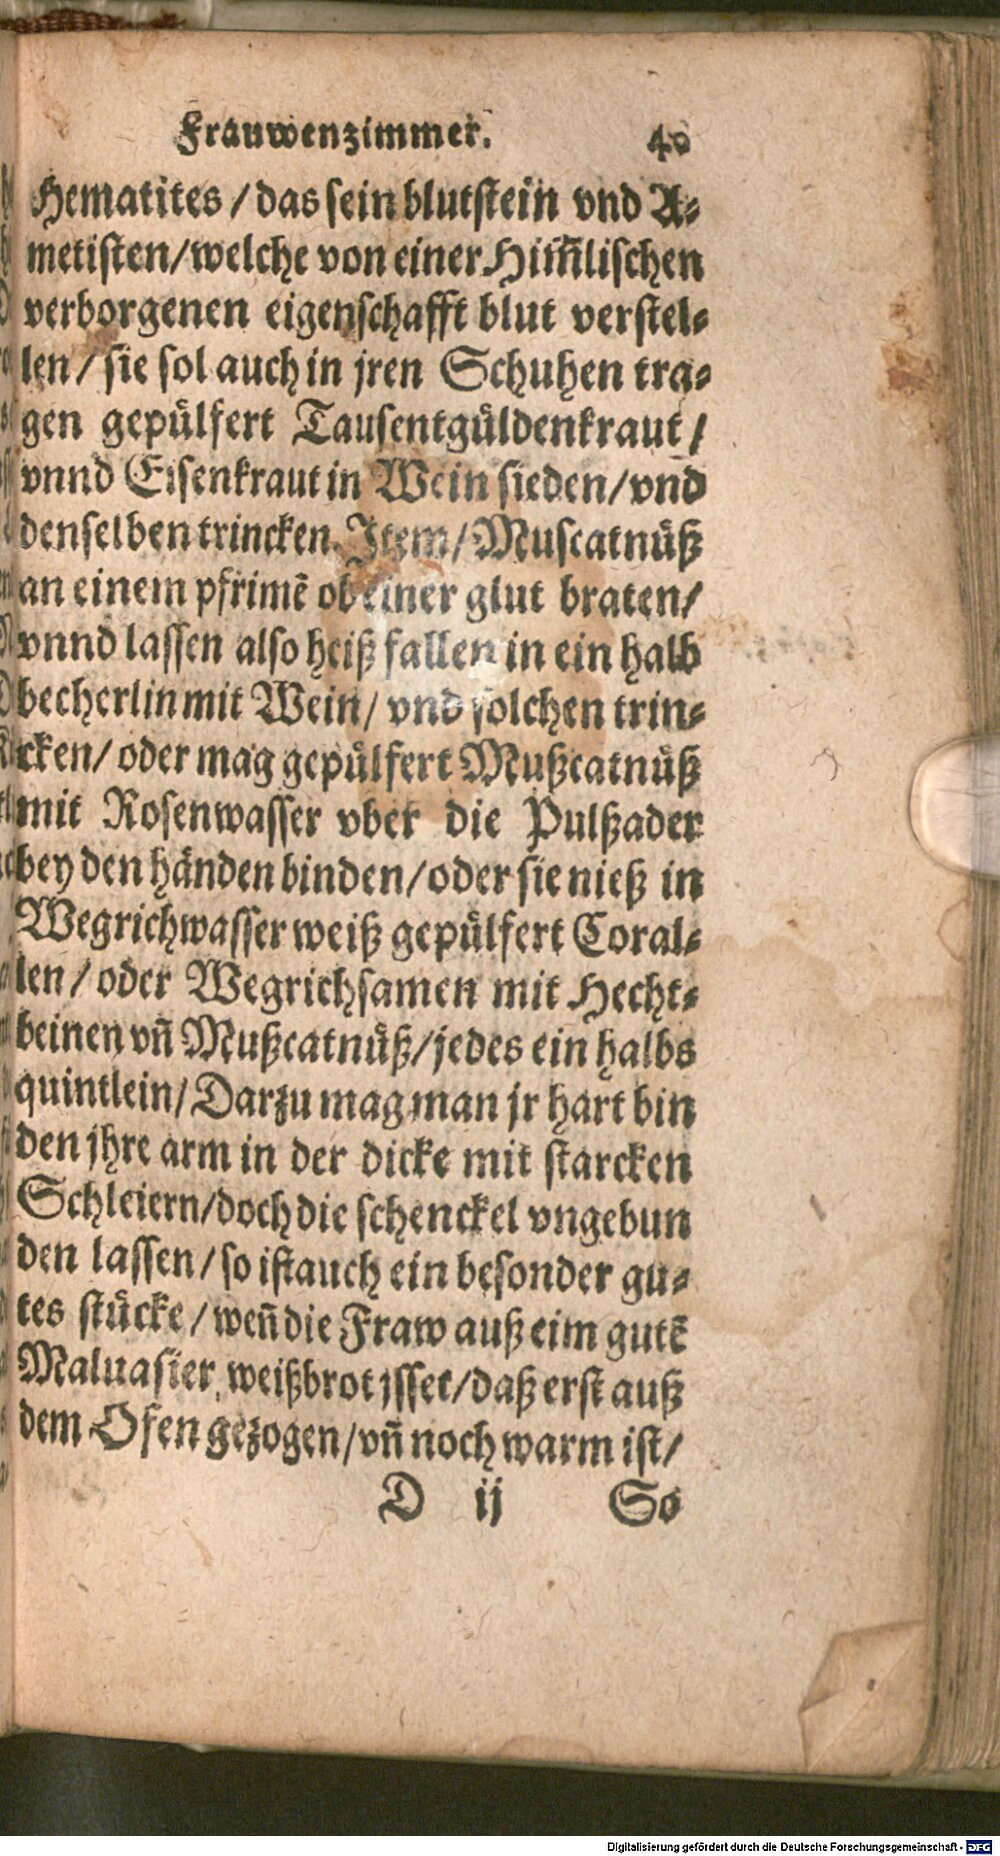 Frauwenzimmer. 40
Hematites / das sein blutstein vnd A-
metisten/welche von einer Him̃lischen
verborgenen eigenschafft blut verstel-
len / sie sol auch in jren Schuhen tra-
gen gepülfert Tausentgüldenkraut /
vnnd Eisenkraut in Wein sieden/vnd
denselben trincken. Item/Muscatnüß
an einem pfrimẽ ob einer glut braten/
vnnd lassen also heiß fallen in ein halb
becherlin mit Wein/ vnd solchen trin-
cken/ oder mag gepülfert Mußcatnüß
mit Rosenwasser vber die Pulßader
bey den händen binden/oder sie nieß in
Wegrichwasser weiß gepülfert Coral-
len / oder Wegrichsamen mit Hecht-
beinen vñ Mußcatnüß/jedes ein halbs
quintlein/ Darzu mag man jr hart bin
den jhre arm in der dicke mit starcken
Schleiern/doch die schenckel vngebun
den lassen / so ist auch ein besonder gu-
tes stücke / weñ die Fraw auß eim gutẽ
Maluasier weißbrot jsset/daß erst auß
dem Ofen gezogen/vñ noch warm ist/
D ij So
Digitalisierung gefördert durch die Deutsche Forschungsgemeinschaft - DFG